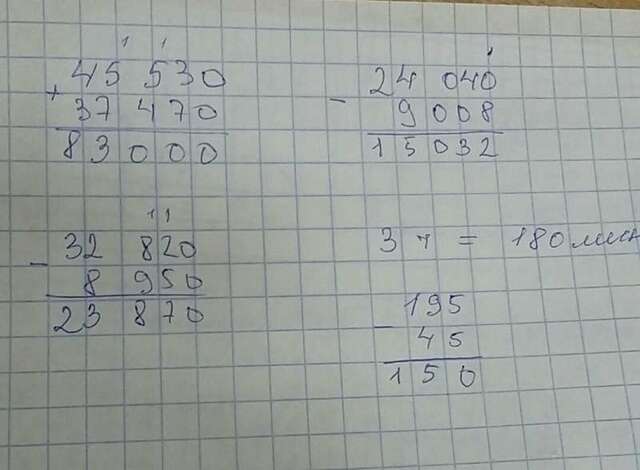 1 1
45 530
+
37 470
83 000
1
24 040
-
9 008
15 032
1 1
32 820
-
8 950
23 870
3 ч = 180 мин
195
-
45
150